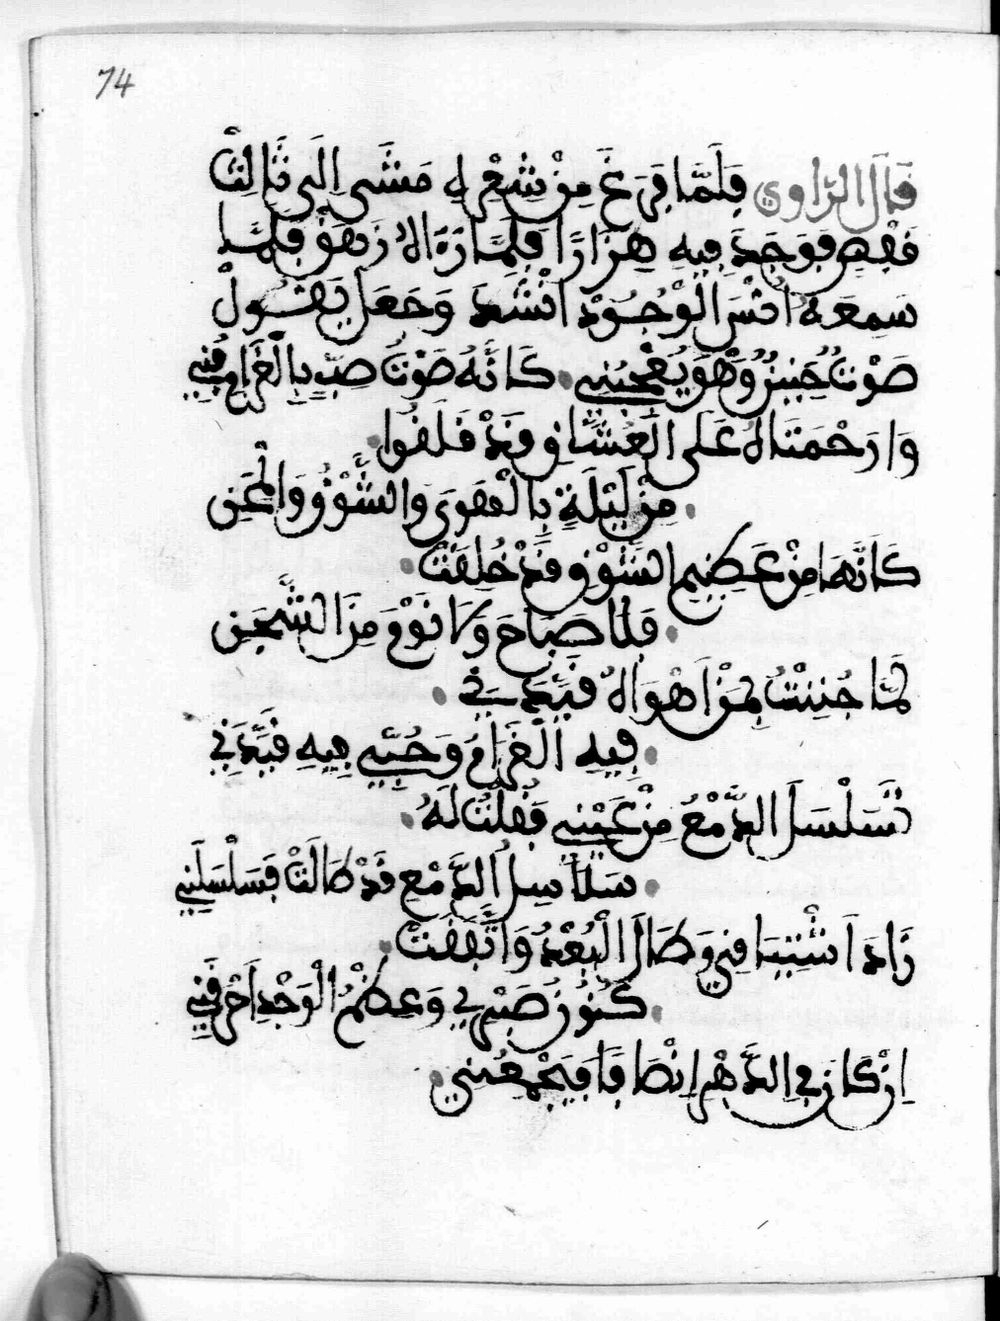 74
قَالَ الرَّاوِي فَلَمَّا فَرَغَ مِنْ شِعْرِهِ مَشَى إِلَى ثَالِثْ
قَفَصٍ فَوَجَدَ فِيهِ هَزَارًا فَلَمَّا رَءَاهُ زَهَقْ فَلَمَّا
سَمِعَهُ انْسَ الْوُجُودْ انْشَدَ وَجَعَلَ يَقُولْ
صَوْتٌ حَنِينٌ وَهْوَ يُعْجِبُنِي كَأَنَّهُ صَوْتُ صَبٍّ بِالْغَرَامِ فُنِي
وَارَحْمَتَاهُ عَلَى الْعُشَّاقِ قَدْ قَلَقُوا
مِنْ لَيْلَةٍ بِالْهَوَى وَالشَّوْقِ وَالْمِحَنِ
كَأَنَّهَا مِنْ عَظِيمِ الشَّوْقِ قَدْ خُلِقَتْ
فَلَا صَبَاحَ وَلَا نَوْمَ مِنَ الشَّجَنِ
لَمَّا جُنِنْتُ بِمَنْ أَهْوَاهُ قَيَّدَنِي
فِيهِ الْغَرَامُ وَحُبِّي فِيهِ قَيَّدَنِي
تَسَلْسَلَ الدَّمْعُ مِنْ عَيْنِي فَقُلْتُ لَهُ
سَلَاسِلُ الدَّمْعِ قَدْ طَالَتْ فَسَلْسَلَنِي
زَادَ اشْتِيَاقِي وَطَالَ الْبُعْدُ وَاتَّفَقَتْ
كُنُوزُ صَبْرِي وَعِظْمُ الْوَجْدِ أَحْرَقَنِي
إِنْ كَانَ فِي الدَّهْرِ إِنْصَافًا فَيَجْمَعُنِي